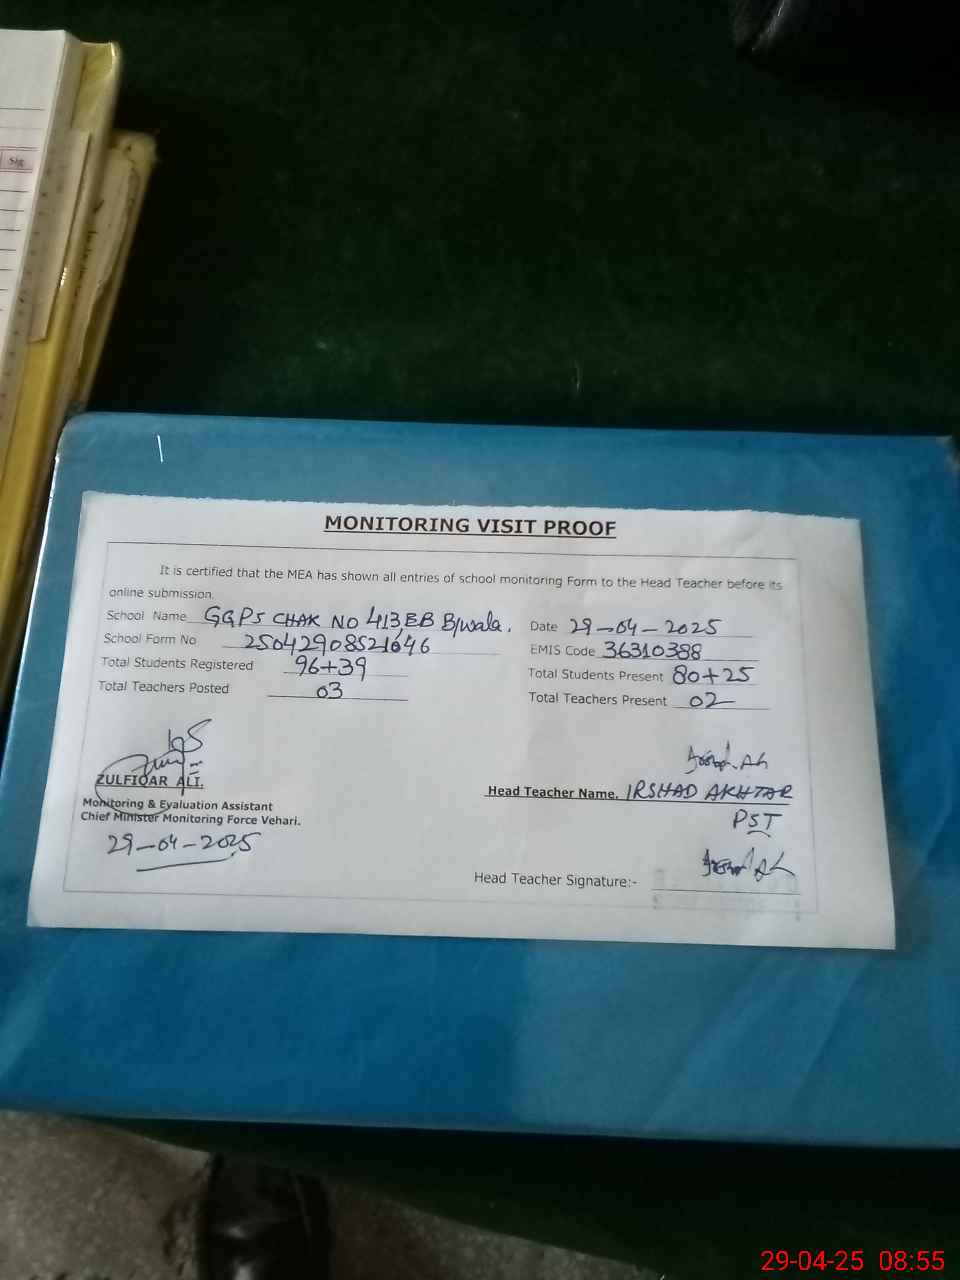 Sig
MONITORING VISIT PROOF
It is certified that the MEA has shown all entries of school monitoring Form to the Head Teacher before its
online submission.
School Name GGPS CHAK NO 413EB B/wala. Date 29-04-2025
School Form No 25042908521646 EMIS Code 36310388
Total Students Registered 96+39 Total Students Present 80+25
Total Teachers Posted 03 Total Teachers Present 02
ZULFIQAR ALI.
Head Teacher Name. IRSHAD AKHTAR
Monitoring & Evaluation Assistant
PST
Chief Minister Monitoring Force Vehari.
29-04-2025
Head Teacher Signature:-
29-04-25 08:55